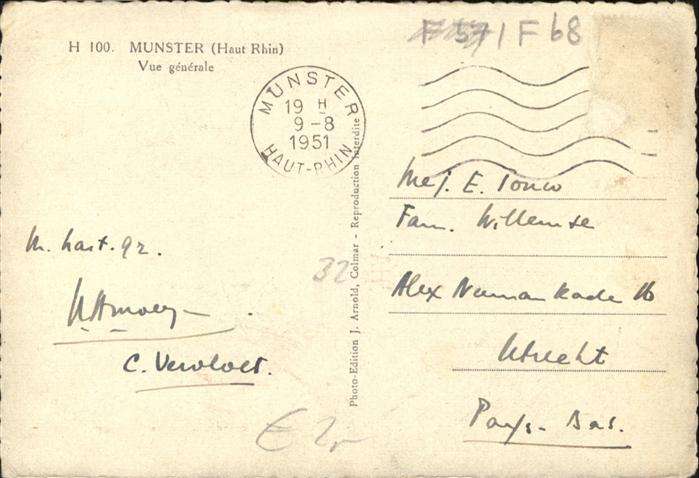 H 100. MUNSTER (Haut Rhin)
Vue générale
F 68
MUNSTER
19 H
9-8
1951
HAUT-RHIN
Photo-Edition J. Arnold, Colmar - Reproduction interdite
M. hart. gr.
C. Vervloet.
32
€ 2,-
Mej. E.
Fam. Willemse
Alex Numankade 16
Utrecht
Pays-Bas.